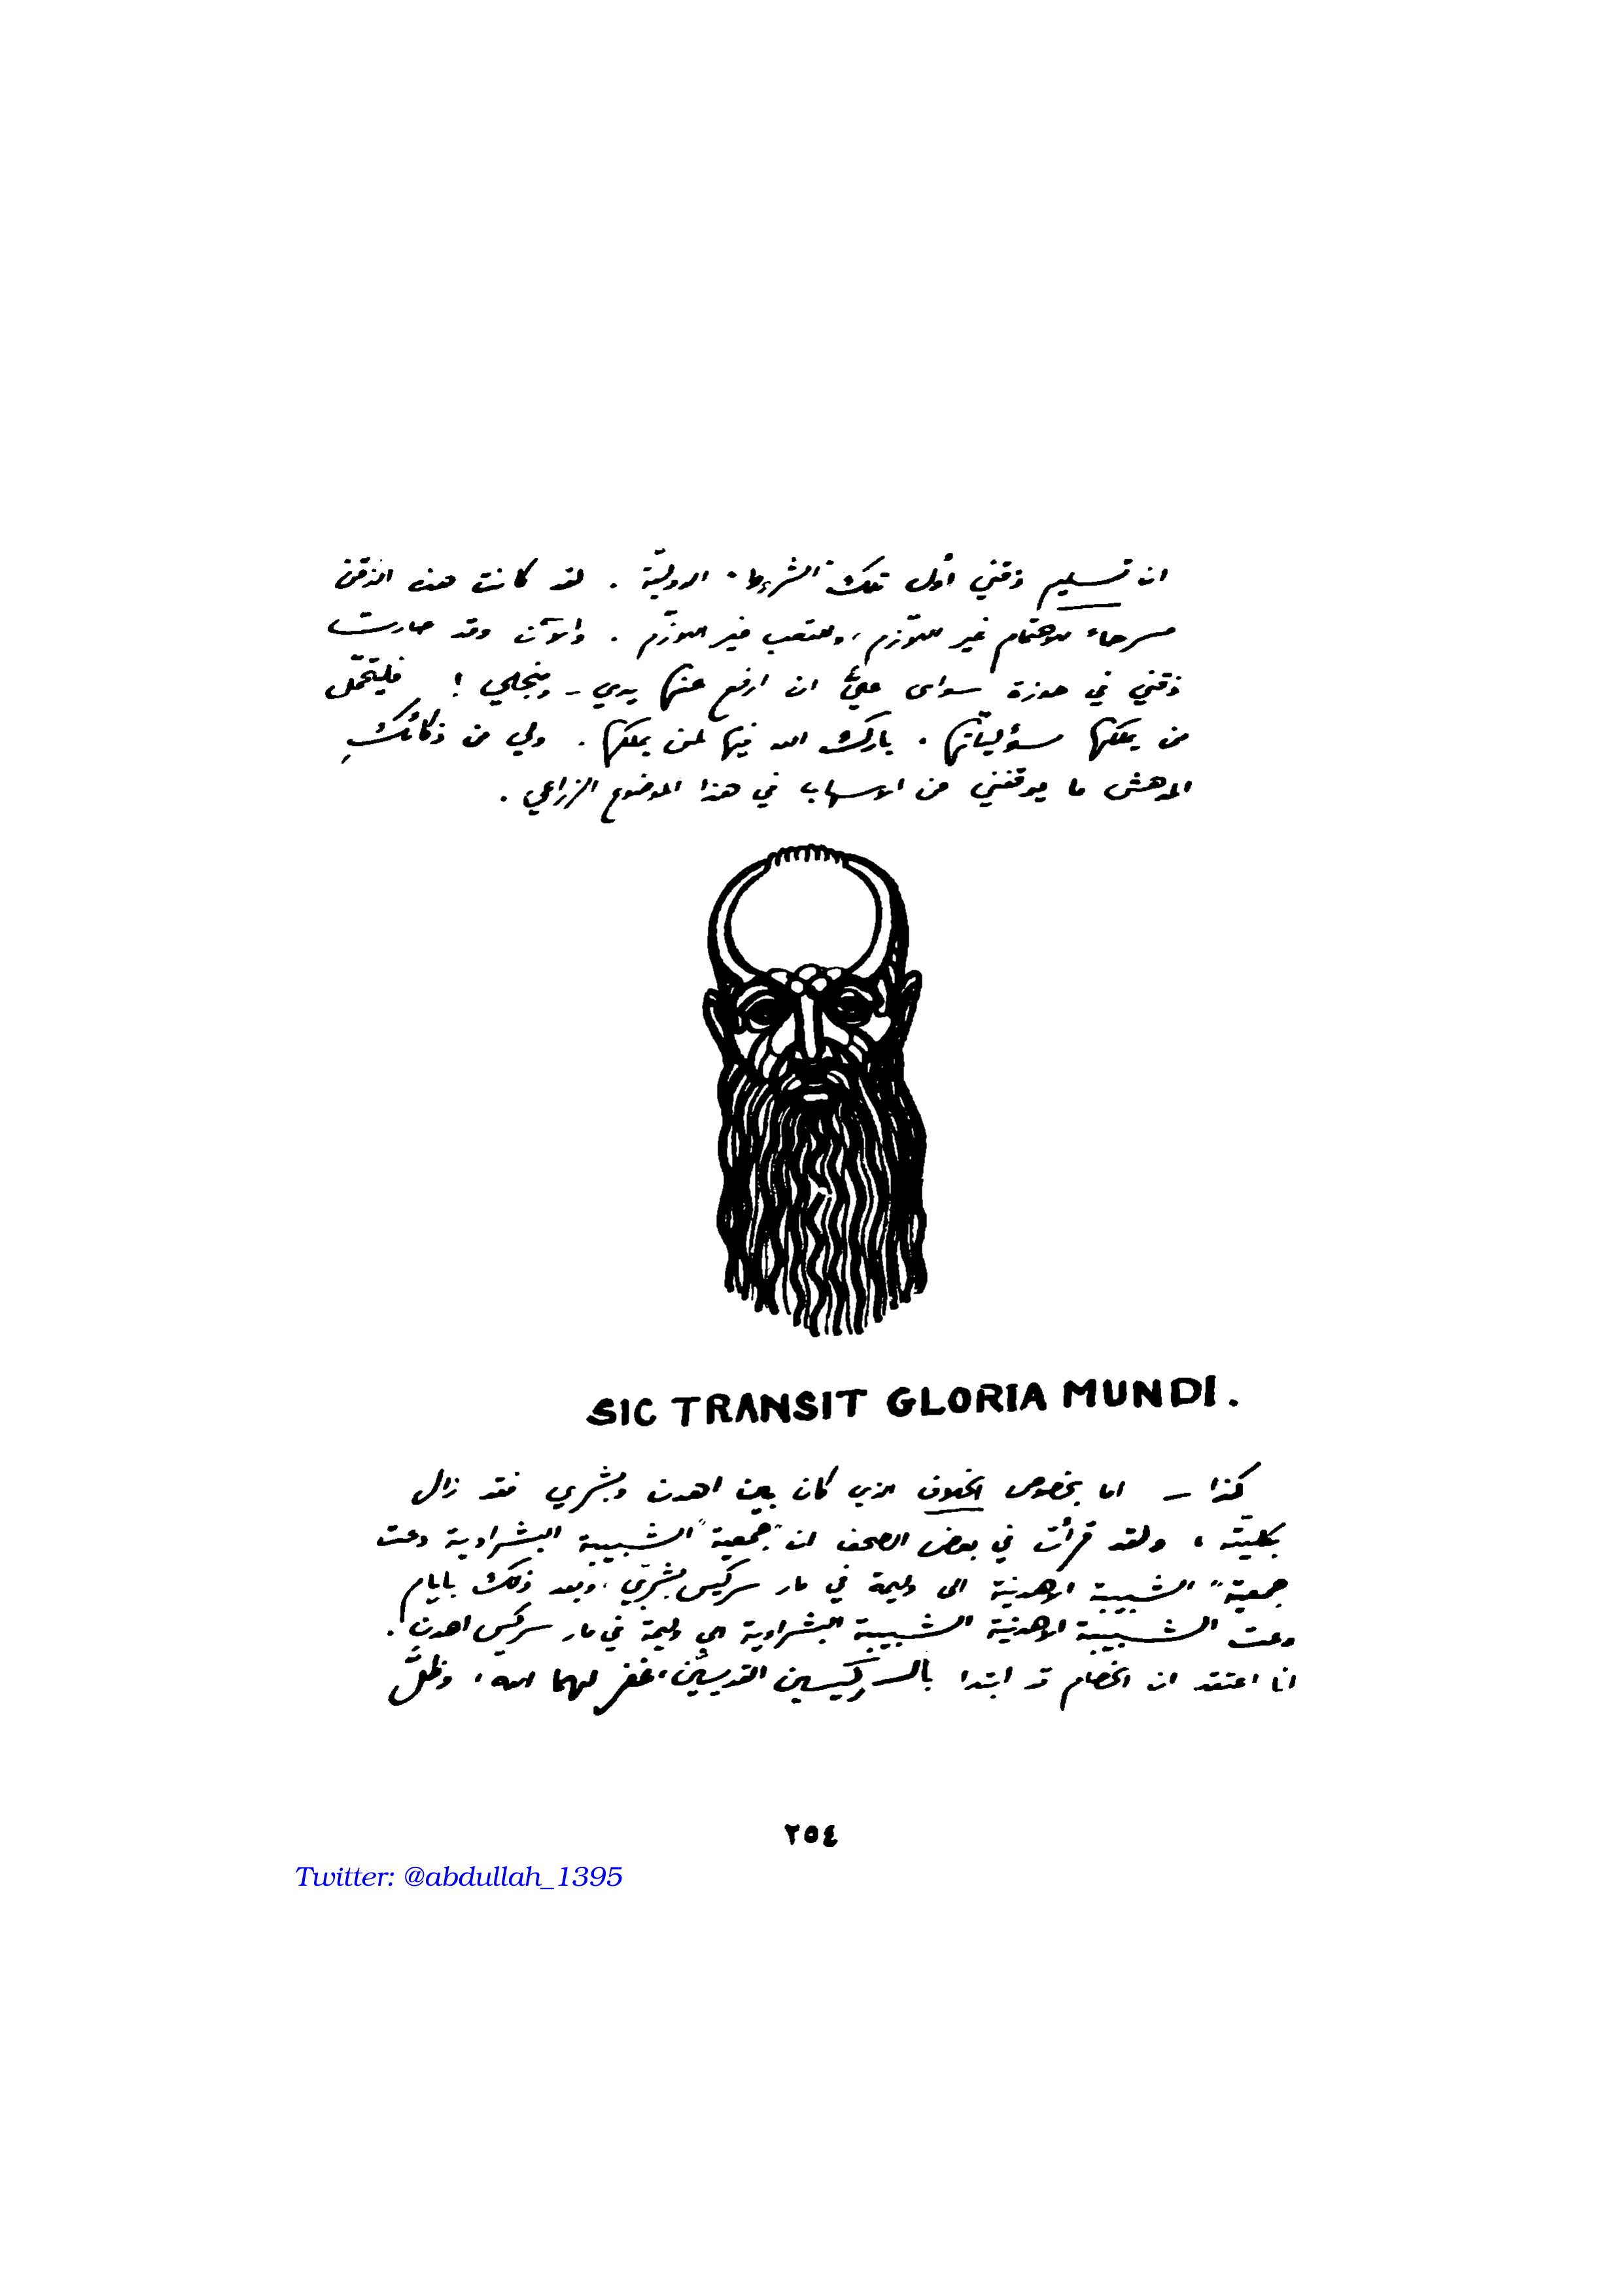 ان تسليم ذقني أول تلك "الشروط" الدوليّة . لقد كانت هذه الذقن
مسرحاً للاهتمام غير اللاّزم ، وللتعب غير اللازّم . والآن وقد صارت
ذقني في حوزة سواي عليَّ ان ارفع عنها يدي – ومنجلي ! فليتحمّل
من يملكها مسؤلياتّها . بارك الله فيها لمن يملكها . ولي من ذكائكِ
المدهش ما يوقفني من الاسهاب في هذا الموضوع الزراعي .
SIC TRANSIT GLORIA MUNDI.
كذا – اما بخصوص الخلاف الذي كان بين اهدن وبشري فقد زال
بكليتّه ، ولقد قرأت في بعض الصحف ان "جمعية" الشبيبة البشراوية دعت
جمعية" الشبيبة الاهدنية الى وليمة في مار سركيس بشرّي ، وبعد ذلك بايام
دعت الشبيبة الاهدنية الشبيبة البشراوية الى وليمة في مار سركيس اهدن .
انا اعتقد ان الخصام قد ابتدا بالسركيسين القديسيّن ، غفر لهما الله ، وظلَّ
٢٥٤
Twitter: @abdullah_1395